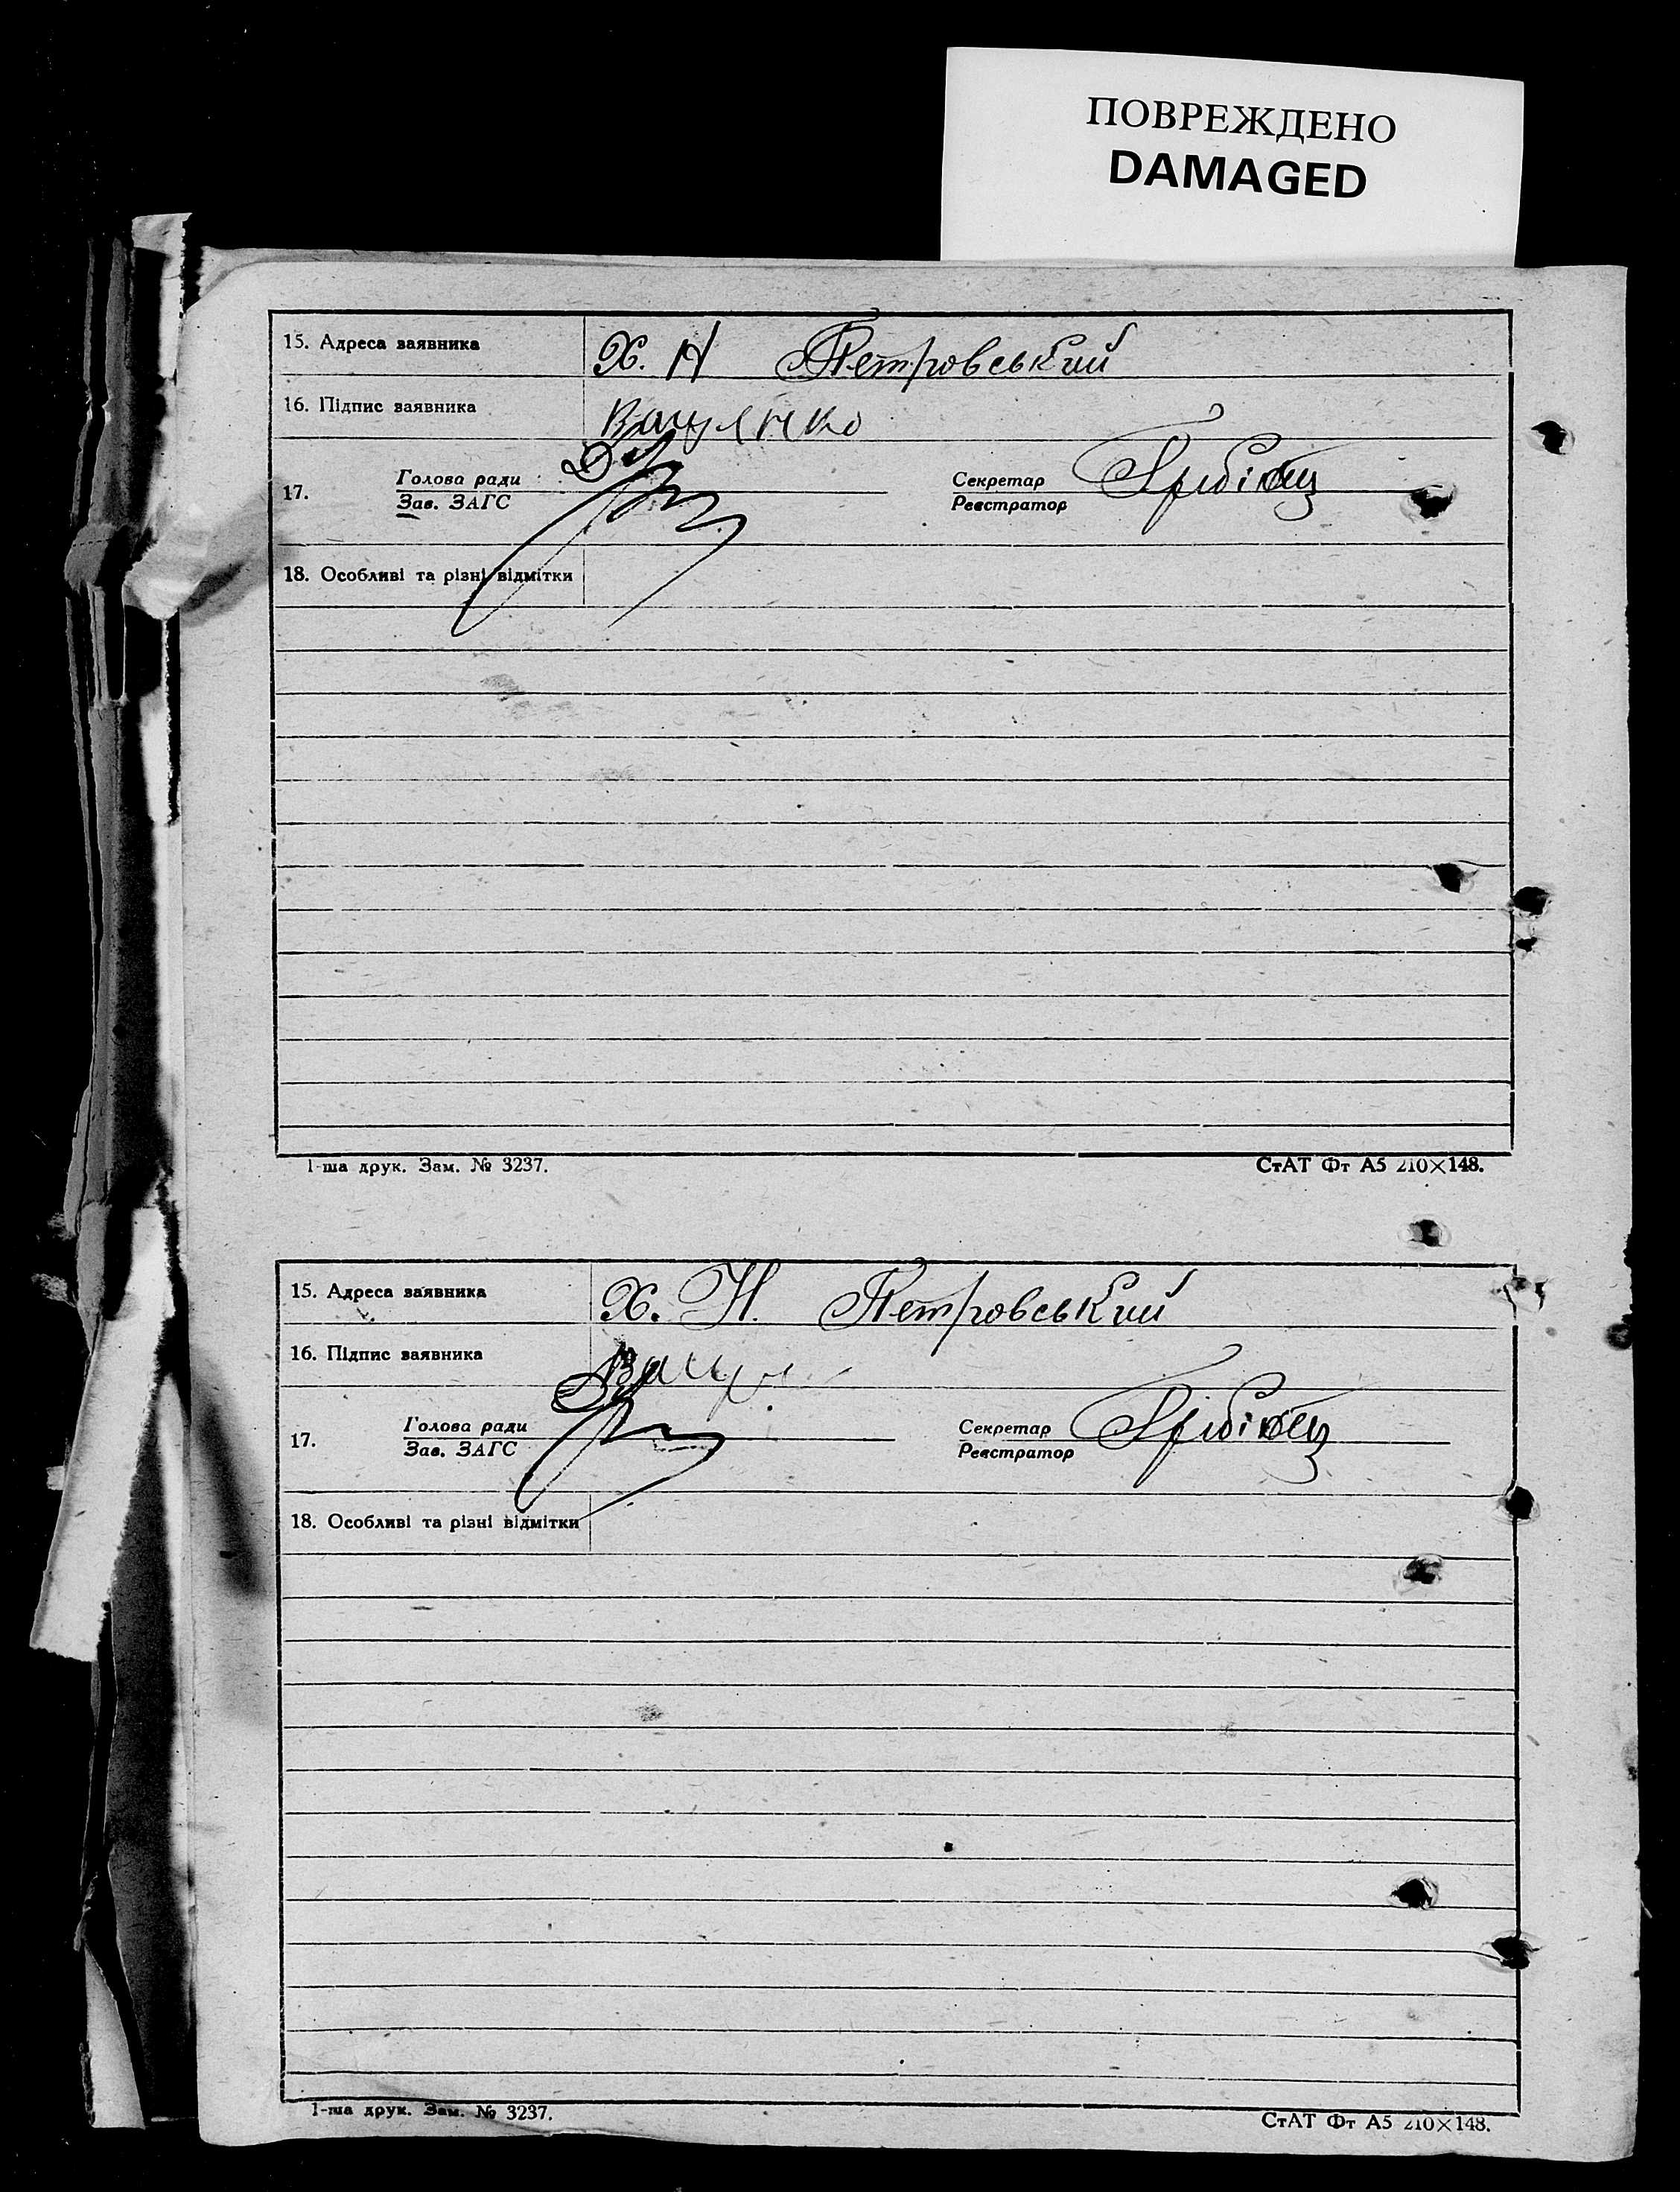 ПОВРЕЖДЕНО
DAMAGED
15. Адреса заявника Х. Н Петровський
16. Підпис заявника
17. Голова ради Секретар
Зав. ЗАГС Реєстратор
18. Особливі та різні відмітки
1-ша друк. Зам. № 3237. СтАТ Фт А5 210×148.
15. Адреса заявника Х. Н. Петровський
16. Підпис заявника
17. Голова ради Секретар
Зав. ЗАГС Реєстратор
18. Особливі та різні відмітки
1-ша друк. Зам. № 3237. СтАТ Фт А5 210×148.